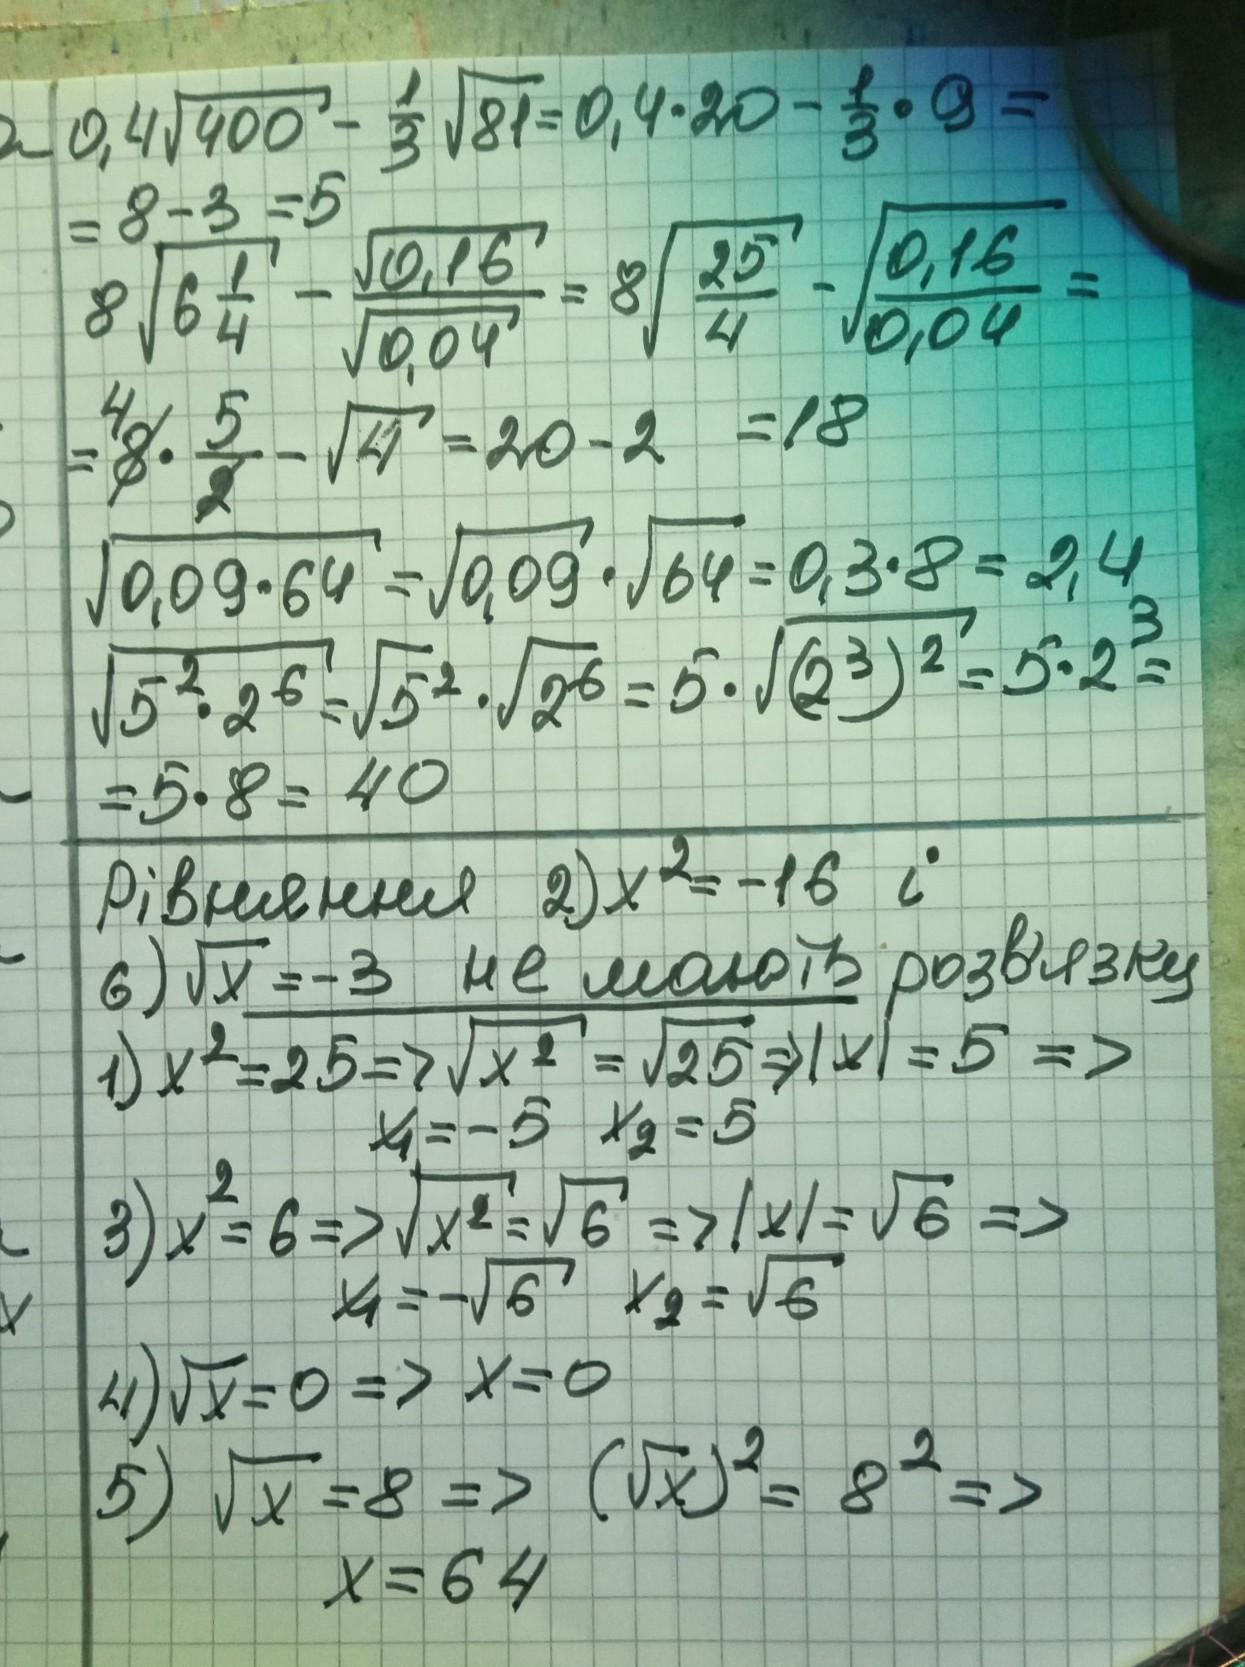 0,4√400 - 1/3 √81 = 0,4·20 - 1/3 · 9 =
= 8 - 3 = 5
8√(6 1/4) - √0,16/√0,04 = 8√(25/4) - √(0,16/0,04) =
= 8⁴ · 5/2 - √4 = 20 - 2 = 18
√(0,09·64) = √0,09 · √64 = 0,3·8 = 2,4
√(5²·2⁶) = √5² · √2⁶ = 5 · √(2³)² = 5·2³ =
= 5·8 = 40
Рівняння 2) x² = -16 і
6) √x = -3 не мають розв'язку
1) x² = 25 => √x² = √25 => |x| = 5 =>
x₁ = -5 x₂ = 5
3) x² = 6 => √x² = √6 => |x| = √6 =>
x₁ = -√6 x₂ = √6
4) √x = 0 => x = 0
5) √x = 8 => (√x)² = 8² =>
x = 64